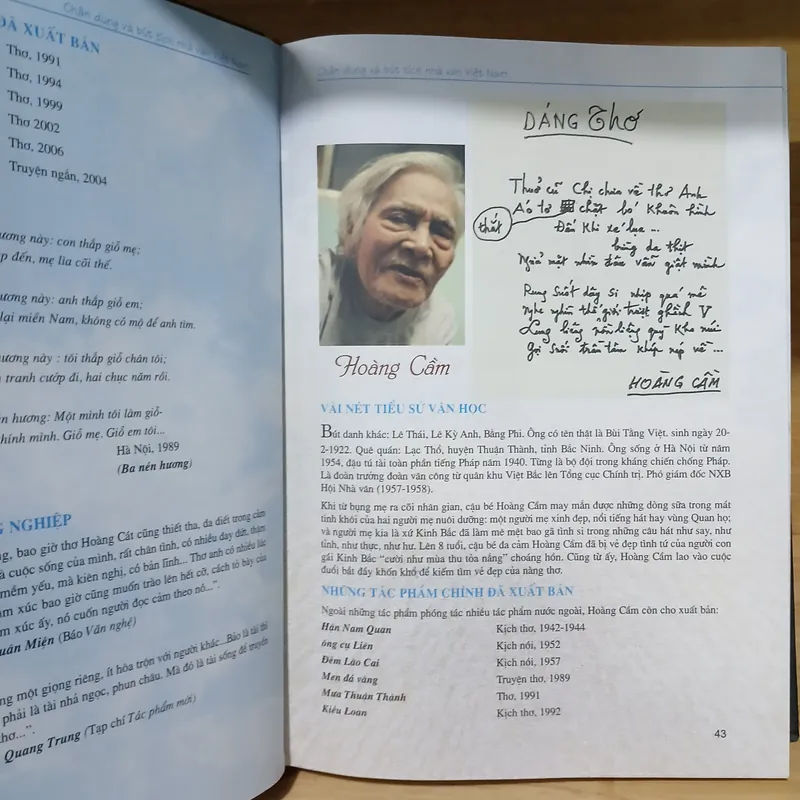 Chân dung và bút tích nhà văn Việt Nam
ĐÃ XUẤT BẢN
Thơ, 1991
Thơ, 1994
Thơ, 1999
Thơ 2002
Thơ, 2006
Truyện ngắn, 2004
hương này: con thắp giỗ mẹ;
đến, mẹ lìa cõi thế.
hương này: anh thắp giỗ em;
lại miền Nam, không có mộ để anh tìm.
hương này : tôi thắp giỗ chân tôi;
tranh cướp đi, hai chục năm rồi.
hương: Một mình tôi làm giỗ-
chính mình. Giỗ mẹ. Giỗ em tôi...
Hà Nội, 1989
(Ba nén hương)
NGHIỆP
bao giờ thơ Hoàng Cát cũng thiết tha, da diết trong cảm
là cuộc sống của mình, rất chân tình, có nhiều day dứt, thậm
mềm yếu, mà kiên nghị, có bản lĩnh... Thơ anh có nhiều lúc
xúc bao giờ cũng muốn trào lên hết cỡ, cách tỏ bày của
xúc ấy, nó cuốn người đọc cảm theo nó...".
Miện (Báo Văn nghệ)
một giọng riêng, ít hòa trộn với người khác...Bảo là tài thì
phải là tài nhả ngọc, phun châu. Mà đó là tài sống để truyền
thơ...".
Quang Trung (Tạp chí Tác phẩm mới)
Chân dung và bút tích nhà văn Việt Nam
DÁNG Thơ
Thuở cũ Chị chưa về thơ Anh
Áo tơ chặt bó khuôn hình
thắt
Đến khi xé lụa ...
bừng da thịt
một nhìn đâu vẫn giật mình
Rung suốt dây si nhịp quá mê
nghe nghìn thế giới trượt ghềnh V
Lung liêng quỳ kho núi
Gọi suối trần tâm khép nép về ...
HOÀNG CẦM
Hoàng Cầm
VÀI NÉT TIỂU SỬ VĂN HỌC
Bút danh khác: Lê Thái, Lê Kỳ Anh, Bằng Phi. Ông có tên thật là Bùi Tằng Việt. sinh ngày 20-
2-1922. Quê quán: Lạc Thổ, huyện Thuận Thành, tỉnh Bắc Ninh. Ông sống ở Hà Nội từ năm
1954, đậu tú tài toàn phần tiếng Pháp năm 1940. Từng là bộ đội trong kháng chiến chống Pháp.
Là đoàn trưởng đoàn văn công từ quân khu Việt Bắc lên Tổng cục Chính trị. Phó giám đốc NXB
Hội Nhà văn (1957-1958).
Khi từ bụng mẹ ra cõi nhân gian, cậu bé Hoàng Cầm may mắn được những dòng sữa trong mát
tinh khôi của hai người mẹ nuôi dưỡng: một người mẹ xinh đẹp, nổi tiếng hát hay vùng Quan họ;
và người mẹ kia là xứ Kinh Bắc đã làm mê mệt bao gã tình si trong những câu hát như say, như
tỉnh, như thực, như hư. Lên 8 tuổi, cậu bé đa cảm Hoàng Cầm đã bị vẻ đẹp tình tứ của người con
gái Kinh Bắc "cười như mùa thu tỏa nắng" choáng hồn. Cũng từ ấy, Hoàng Cầm lao vào cuộc
đuổi bắt đầy khốn khổ để kiếm tìm vẻ đẹp của nàng thơ.
NHỮNG TÁC PHẨM CHÍNH ĐÃ XUẤT BẢN
Ngoài những tác phẩm phóng tác nhiều tác phẩm nước ngoài, Hoàng Cầm còn cho xuất bản:
Hận Nam Quan Kịch thơ, 1942-1944
ông cụ Liên Kịch nói, 1952
Đêm Lào Cai Kịch nói, 1957
Men đá vàng Truyện thơ, 1989
Mưa Thuận Thành Thơ, 1991
Kiều Loan Kịch thơ, 1992
43